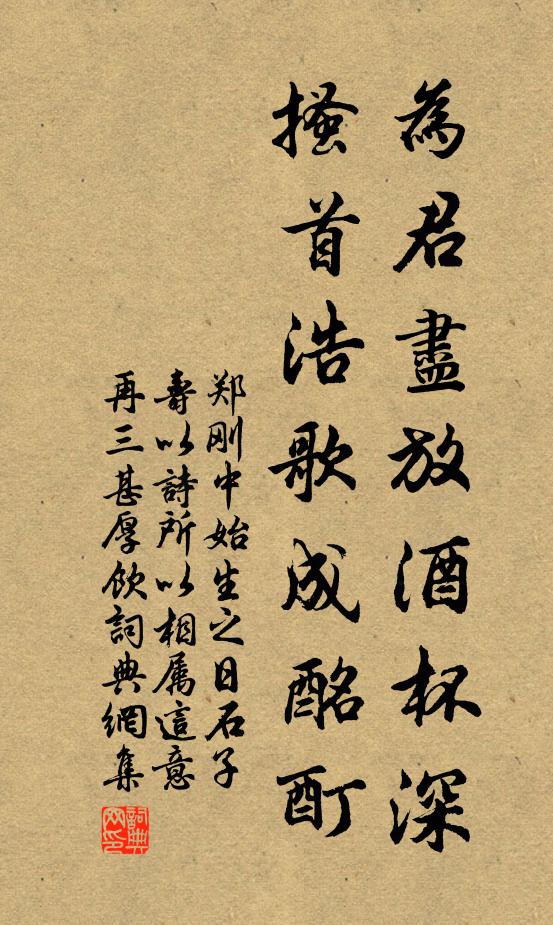 為君盡放酒杯深
搔首浩歌成酩酊
郑刚中始生之日石子
壽以詩所以相属這意
再三甚厚飲詞典網集
詞典网印